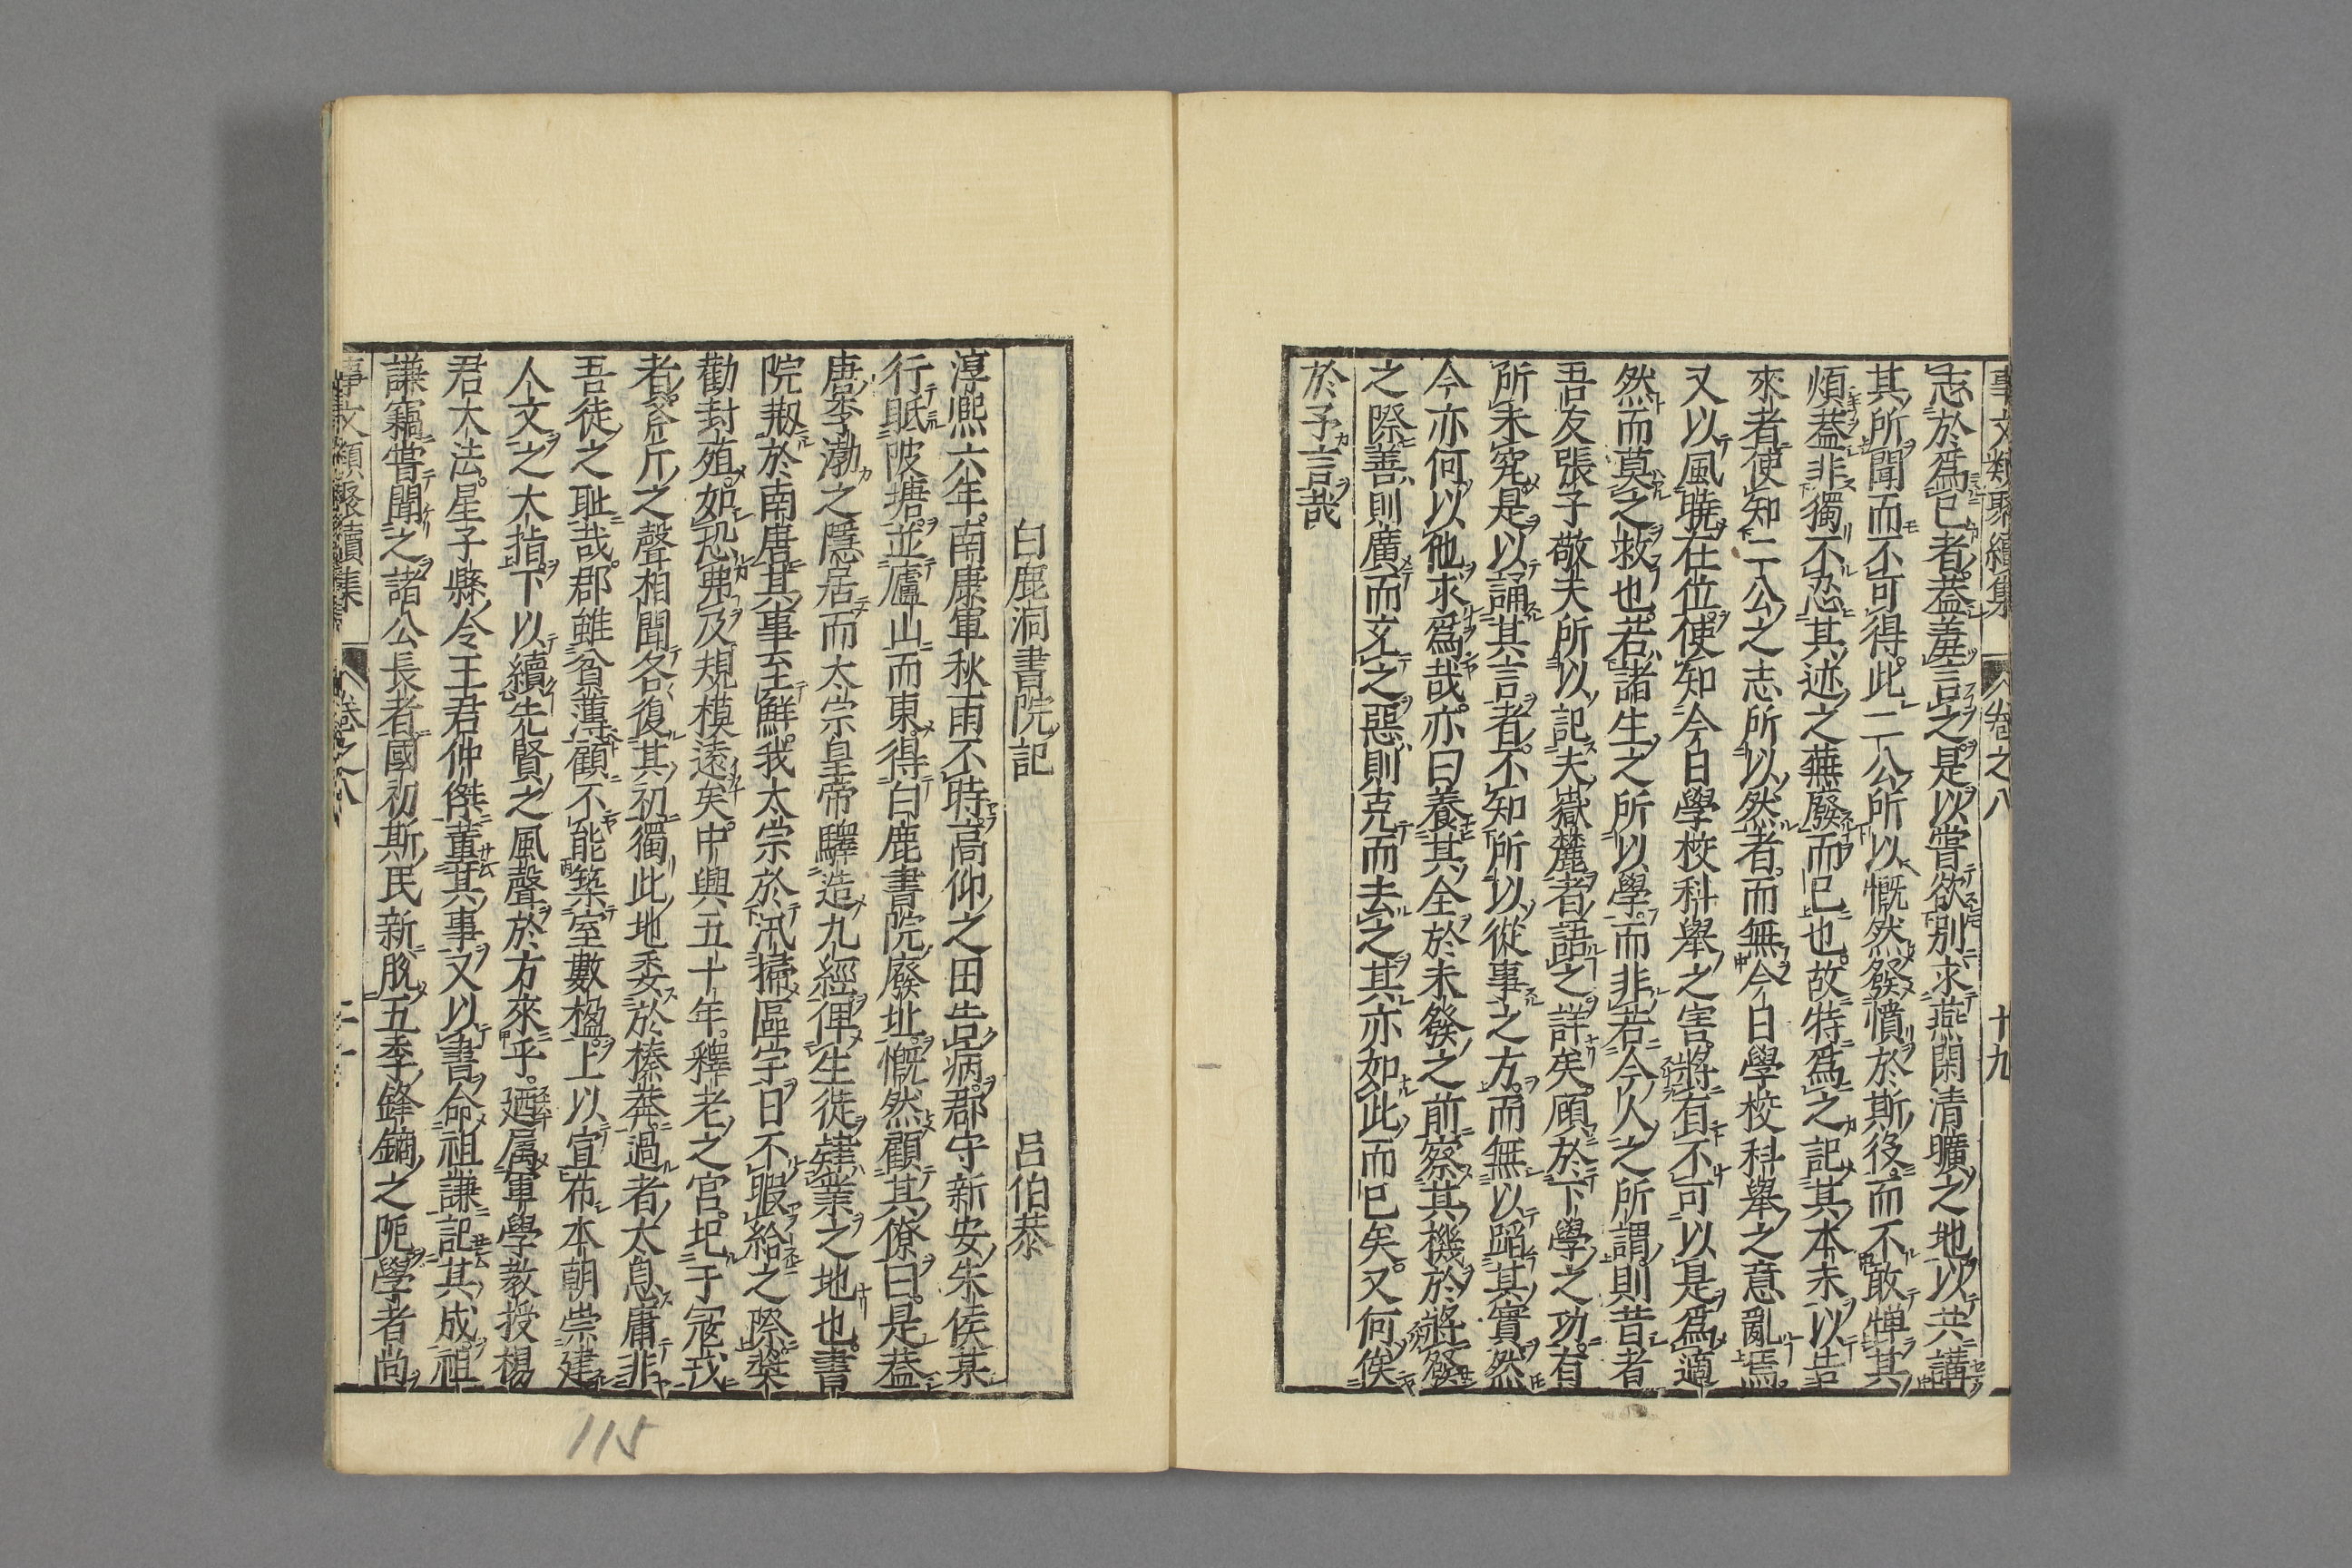 事文類聚續集 卷之八 十九
志於爲已者蓋羞言之是以嘗欲別求燕閑清曠之地以共講
其所聞而不可得此二公所以慨然發憤於斯役而不敢憚其
煩蓋非獨不忍其迹之蕪廢而已也故特爲之記其本末以告
來者使知二公之志所以然者而無今日學校科舉之意亂焉
又以風曉在位使知今日學校科舉之害將有不可以是爲適
然而莫之救也若諸生之所以學而非若今人之所謂則昔者
吾友張子敬夫所以記夫嶽麓者語之詳矣顧於下學之功有
所未究是以誦其言者不知所以從事之方而無以蹈其實然
今亦何以他求爲哉亦曰養其全於未發之前察其機於將發
之際善則廣而充之惡則克而去之其亦如此而已矣又何俟
於予言哉
白鹿洞書院記 吕伯恭
淳熙六年南康軍秋雨不時高仰之田告病郡守新安朱侯某
行眡陂塘並廬山而東得白鹿書院廢址慨然顧其僚曰是蓋
唐李渤之隱居而太宗皇帝驛造九經俾生徒肄業之地也書
院刱於南唐其事至鮮我太宗於汛掃區宇日不暇給之際奬
勸封殖如恐弗及規模遠矣中興五十年釋老之宫圯于冦戎
者斧斤之聲相聞各復其初獨此地委於榛莽過者太息庸非
吾徒之耻哉郡雖貧薄顧不能築室數楹上以宣布本朝崇建
人文之大指下以續先賢之風聲於方來乎廼属軍學教授楊
君大法星子縣令王君仲傑董其事又以書命祖謙記其成祖
謙竊嘗聞之諸公長者國初斯民新脫五季鋒鏑之阨學者尚
事文類聚續集 卷之八